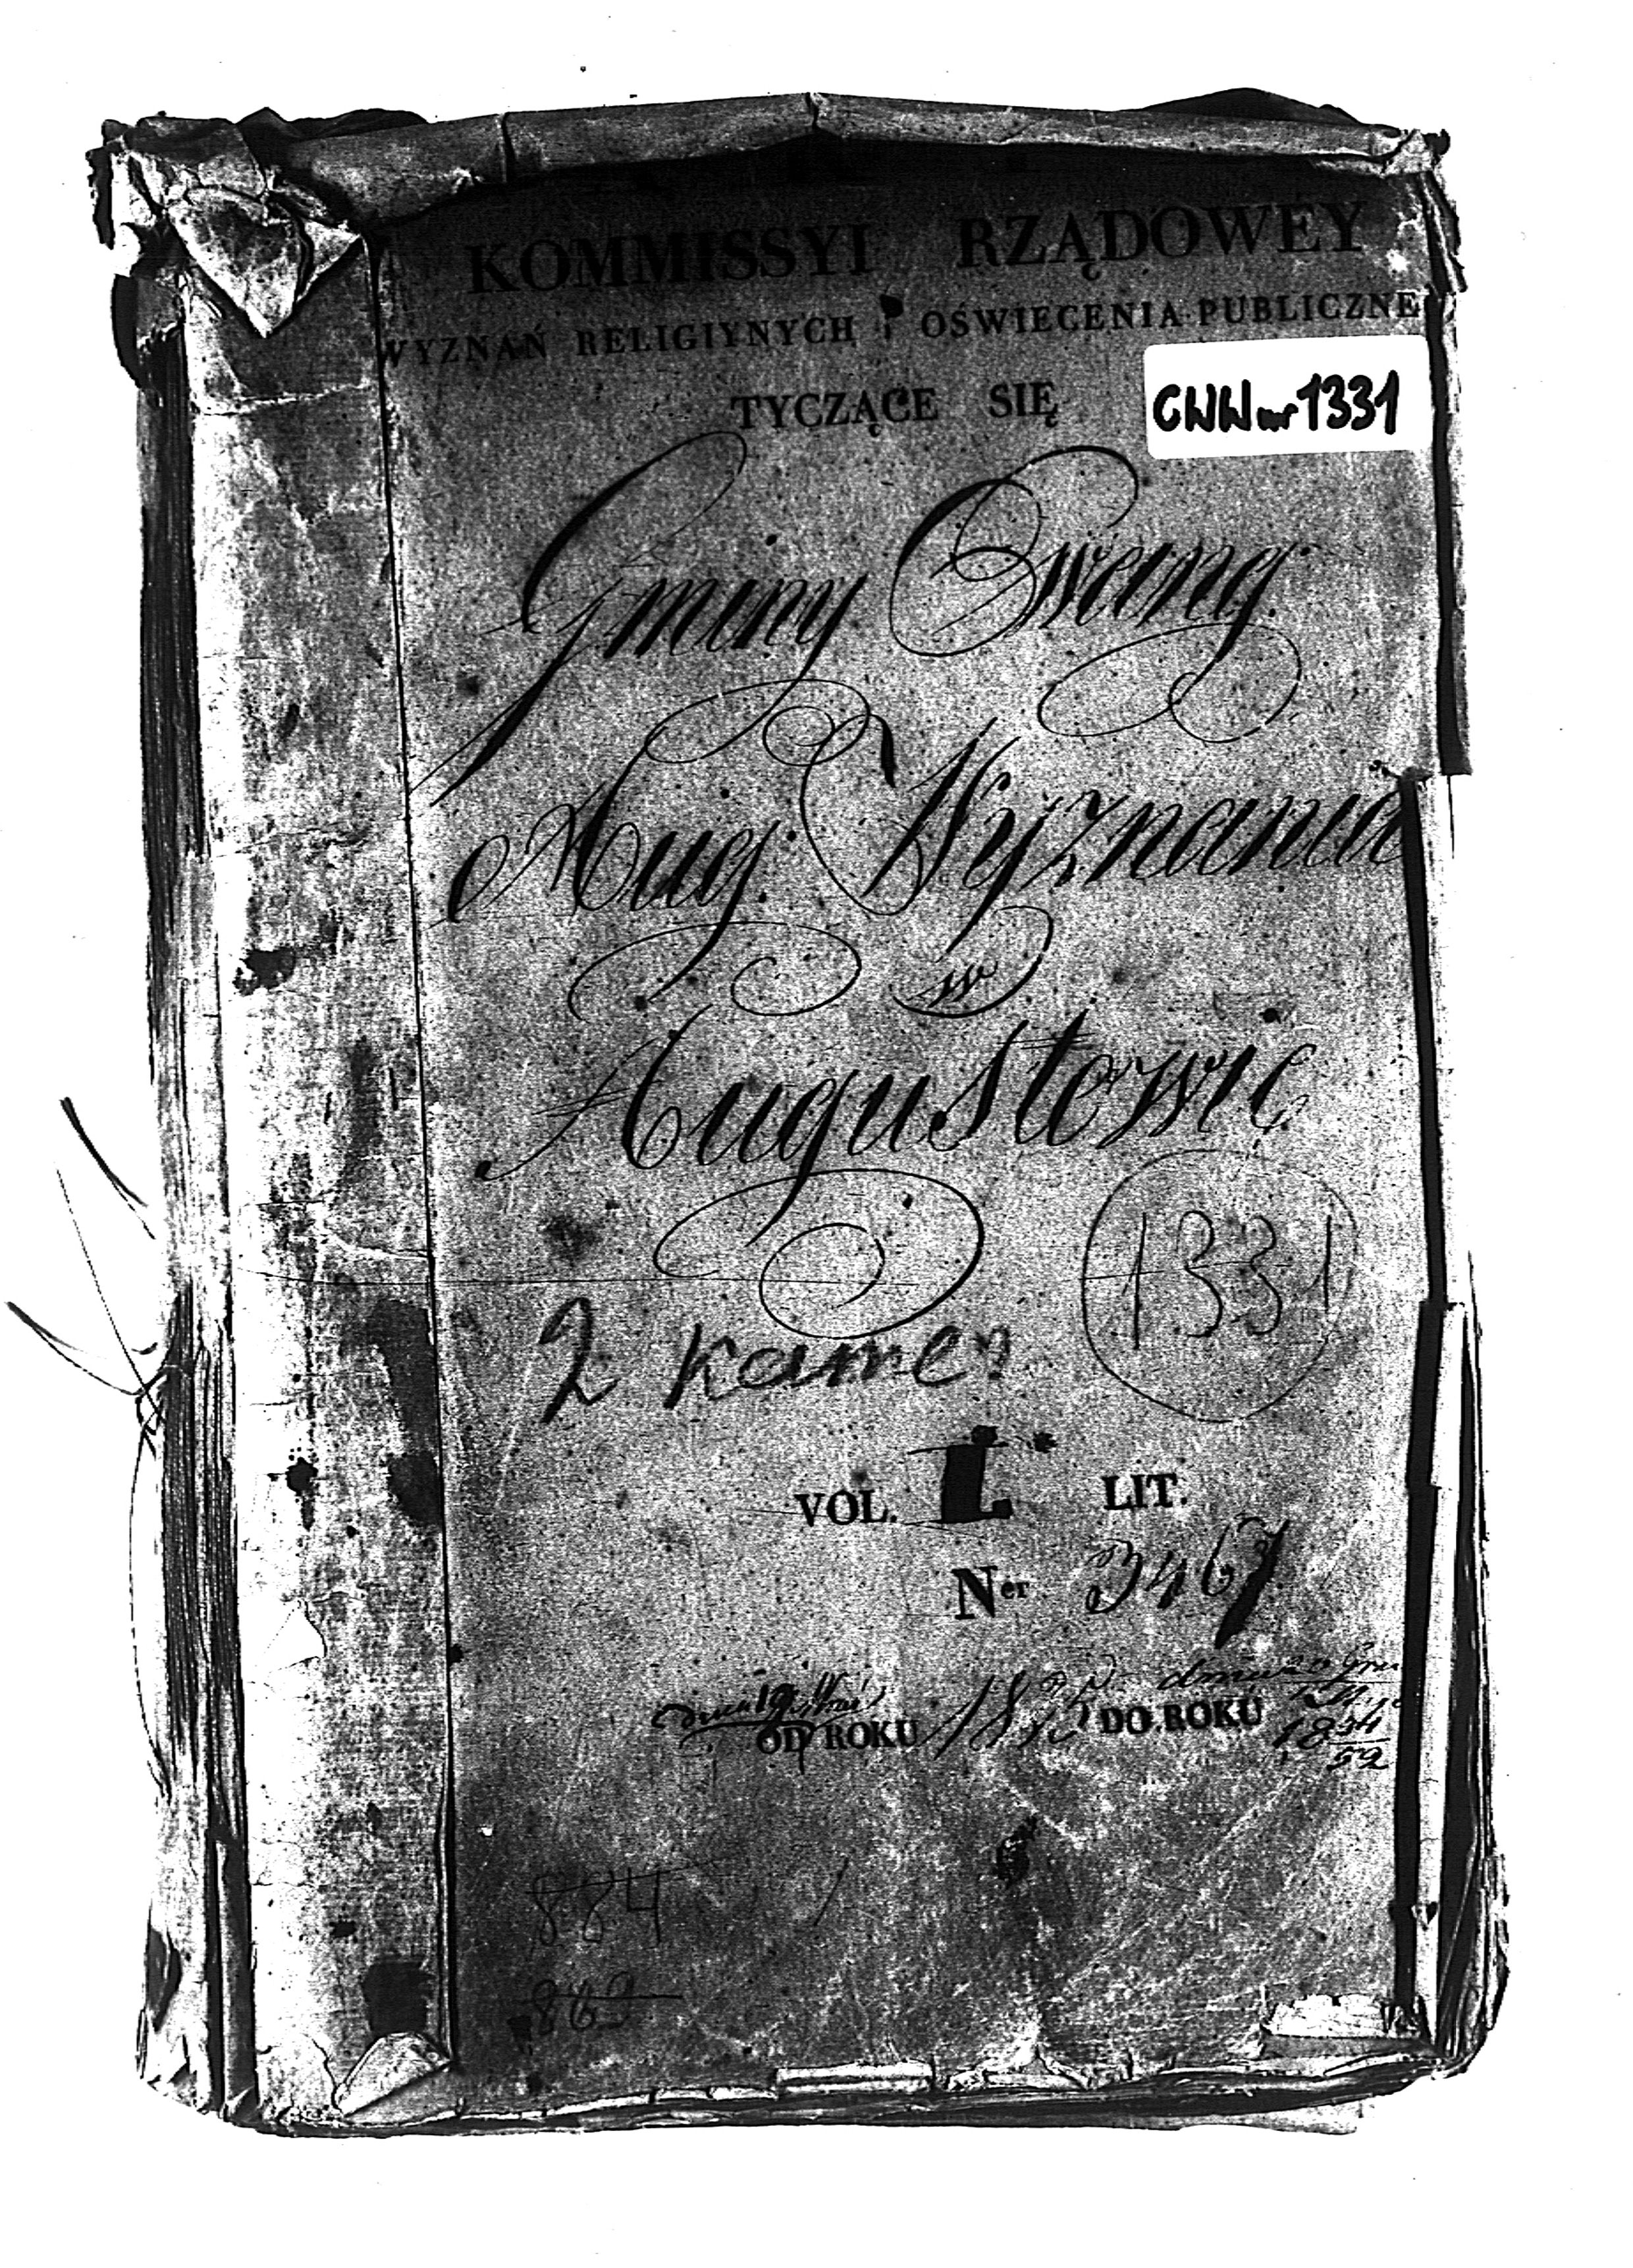 KOMMISSYI RZĄDOWEY
WYZNAŃ RELIGIYNYCH OŚWIECENIA PUBLICZNE
TYCZĄCE SIĘ
CWW nr 1331
Gminy Ewang.
Aug. Wyznania
w
Augustowie
1331
2 kamer
VOL. I LIT.
Ner 3467
OD ROKU DO ROKU
18 54/59
884
863